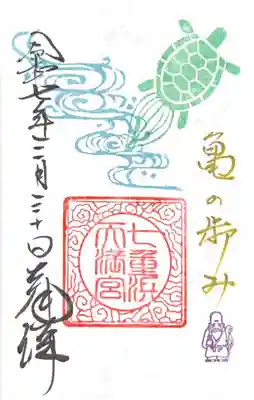 亀の歩み
七重浜
天満宮
令和七年二月二十日 奉拝